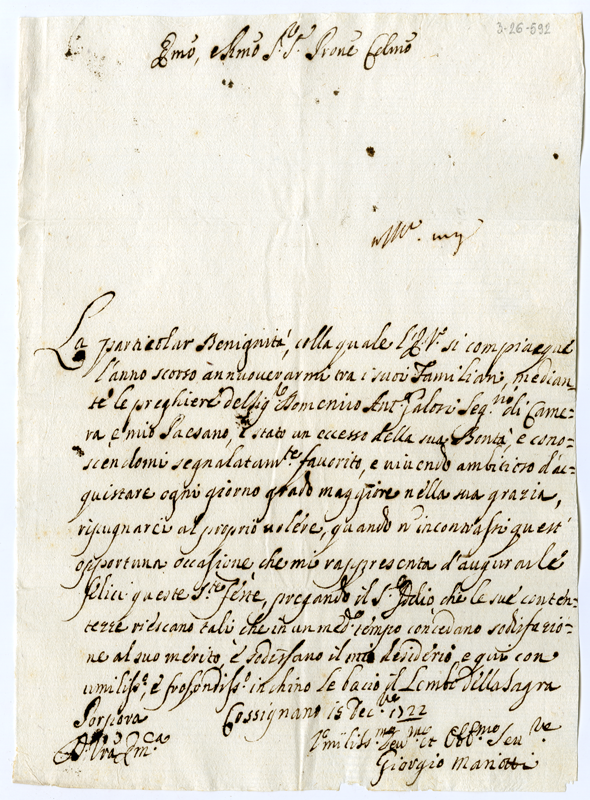 3-26-592
Emo, e Rmo Sr. Sr. Prone Colmo
La particolar Benignità, colla quale l'E. V. si compiacque
l'anno scorso annoverarmi tra i suoi Familiari, median-
te le preghiere del Sig.e Domenico Ant.o Segr.rio di Came-
ra e mio Paesano, è stato un eccesso della sua Bontà, e cono-
scendomi segnalatam.te favorito, e vivendo ambitioso d'ac-
quistare ogni giorno grado maggiore nella sua grazia,
ripugnarei al proprio volere, quando n' incontrassi quest'
opportuna occasione che mi rappresenta d'augurarle
felici queste S.te feste, pregando il S.re Iddio che le sue conten-
tezze riescano tali che in un med.o tempo concedano sodisfazio-
ne al suo merito, e sodisfano il mio desiderio, e qui con
umiliss.o e profondiss.o inchino le bacio il Lembo della Sagra
Porpora Cossignano 15 Dec.bre 1722
D. Vra Em.ca Umiliss.mo et Obb.mo Ser.ve
Giorgio Mariotti